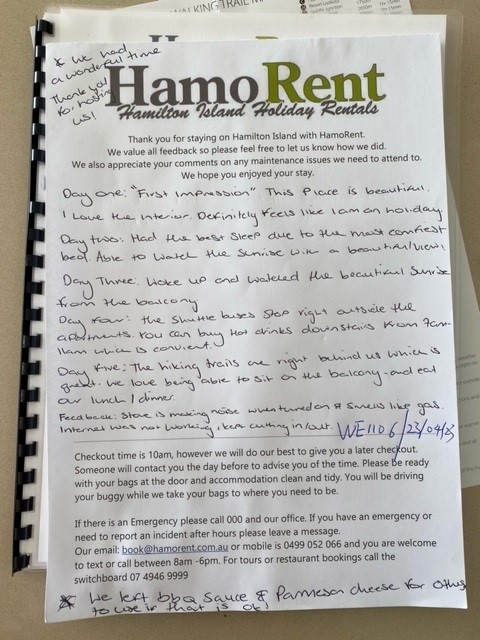 WALKING TRAIL M
* We had
a wonderful time
Thank you
for hosting
us!
HamoRent
Hamilton Island Holiday Rentals
Thank you for staying on Hamilton Island with HamoRent.
We value all feedback so please feel free to let us know how we did.
We also appreciate your comments on any maintenance issues we need to attend to.
We hope you enjoyed your stay.
Day one: "First Impression" This Place is beautiful.
I Love the Interior. Definitely feels like I am on holiday
Day two: Had the best sleep due to the most comfiest
bed. Able to watch the sunrise with a beautiful view!
Day Three: Woke up and watched the beautiful sunrise
from the balcony
Day four: the shuttle buses stop right outside the
apartments. You can buy hot drinks downstairs from 7am-
11am which is convient.
Day Five: The hiking trails are right behind us which is
great. We love being able to sit on the balcony and eat
our lunch / dinner.
Feedback: Stove is making noise when turned on & smells like gas.
Internet was not working, kept cutting in/out. WE1106/23/04/23
Checkout time is 10am, however we will do our best to give you a later checkout.
Someone will contact you the day before to advise you of the time. Please be ready
with your bags at the door and accommodation clean and tidy. You will be driving
your buggy while we take your bags to where you need to be.
If there is an Emergency please call 000 and our office. If you have an emergency or
need to report an incident after hours please leave a message.
Our email: book@hamorent.com.au or mobile is 0499 052 066 and you are welcome
to text or call between 8am -6pm. For tours or restaurant bookings call the
switchboard 07 4946 9999
* We left bbq sauce & Parmesan cheese for others
to use if that is ok!